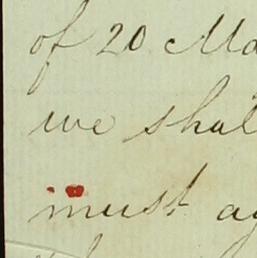 of 20 Ma
we shal
must ag